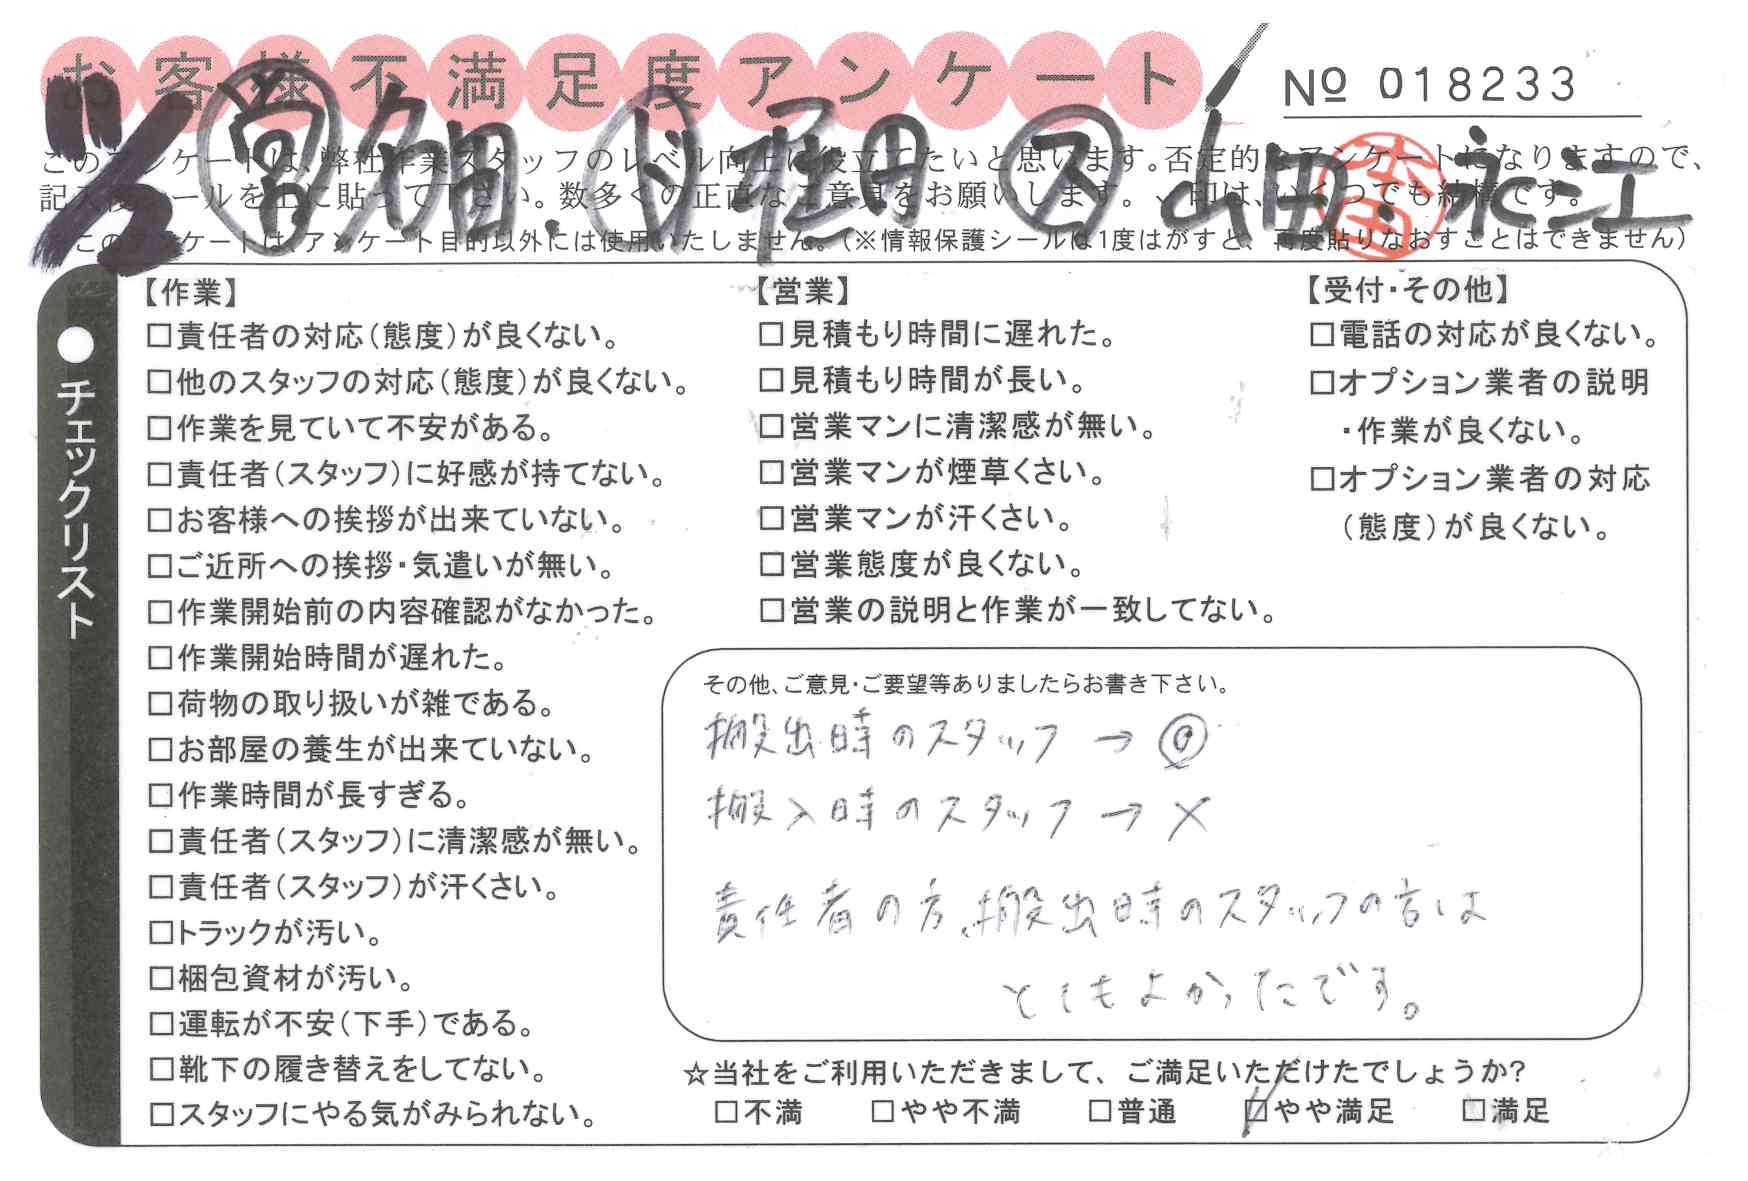 お客様不満足度アンケート
№ 018233
このアンケートは、弊社作業スタッフのレベル向上に役立てたいと思います。否定的なアンケートになりますので、
記入後シールを上に貼って下さい。数多くの正直なご意見をお願いします。✓印は、いくつでも結構です。
このアンケートは、アンケート目的以外には使用いたしません。(※情報保護シールは1度はがすと、再度貼りなおすことはできません)
営 ド ス 山田.永江
●チェックリスト
【作業】
□責任者の対応(態度)が良くない。
□他のスタッフの対応(態度)が良くない。
□作業を見ていて不安がある。
□責任者(スタッフ)に好感が持てない。
□お客様への挨拶が出来ていない。
□ご近所への挨拶・気遣いが無い。
□作業開始前の内容確認がなかった。
□作業開始時間が遅れた。
□荷物の取り扱いが雑である。
□お部屋の養生が出来ていない。
□作業時間が長すぎる。
□責任者(スタッフ)に清潔感が無い。
□責任者(スタッフ)が汗くさい。
□トラックが汚い。
□梱包資材が汚い。
□運転が不安(下手)である。
□靴下の履き替えをしてない。
□スタッフにやる気がみられない。
【営業】
□見積もり時間に遅れた。
□見積もり時間が長い。
□営業マンに清潔感が無い。
□営業マンが煙草くさい。
□営業マンが汗くさい。
□営業態度が良くない。
□営業の説明と作業が一致してない。
【受付・その他】
□電話の対応が良くない。
□オプション業者の説明
・作業が良くない。
□オプション業者の対応
(態度)が良くない。
その他、ご意見・ご要望等ありましたらお書き下さい。
搬出時のスタッフ → ◎
搬入時のスタッフ → ×
責任者の方、搬出時のスタッフの方は
とてもよかったです。
☆当社をご利用いただきまして、ご満足いただけたでしょうか?
□不満 □やや不満 □普通 □やや満足 □満足